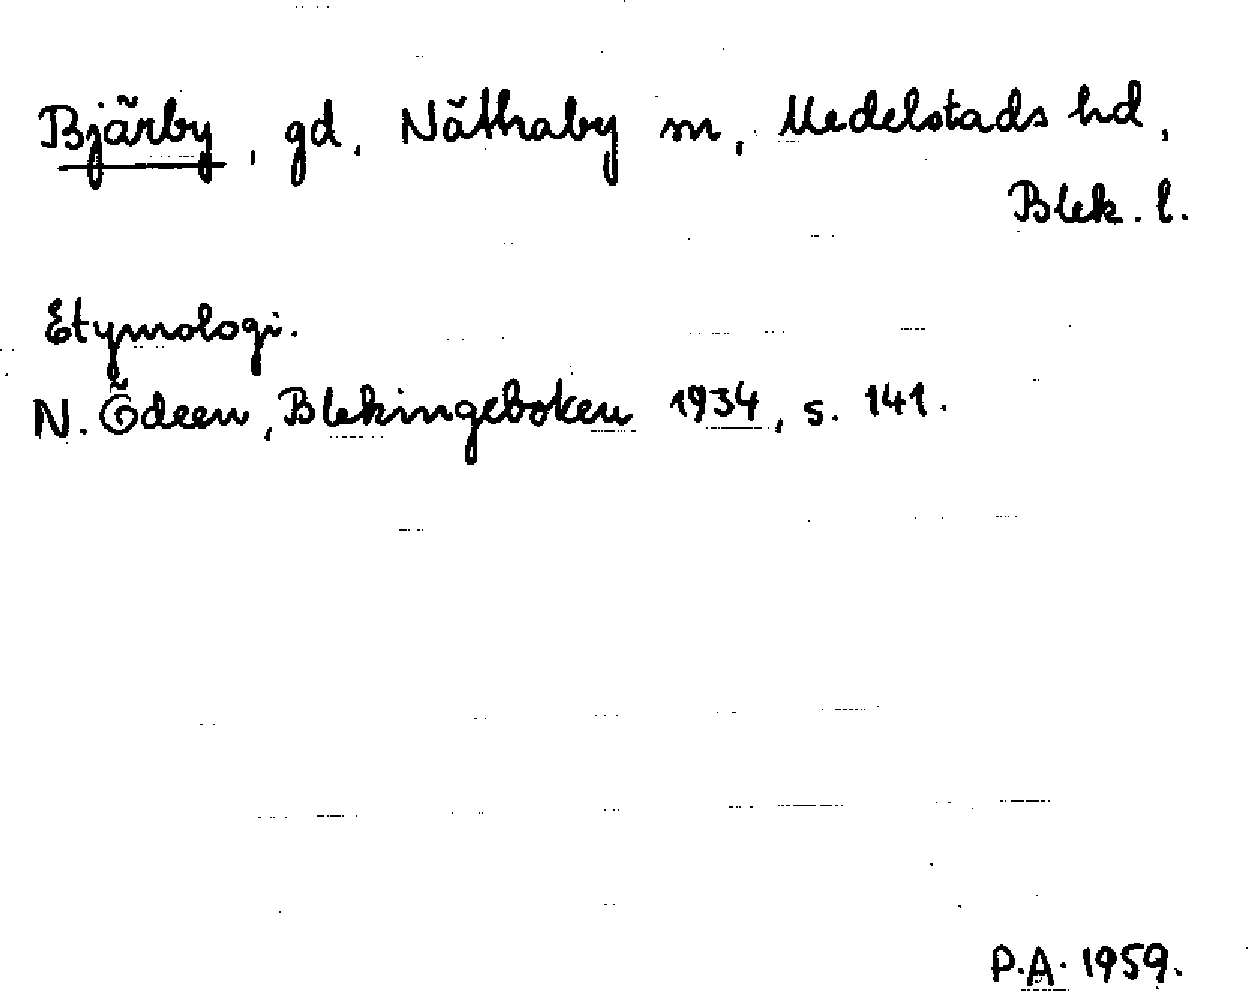 Bjärby, gd, Nättraby sn, Medelstads hd,
Blek. l.
Etymologi.
N. Ödeen, Blekingeboken 1934, s. 141.
P.A. 1959.